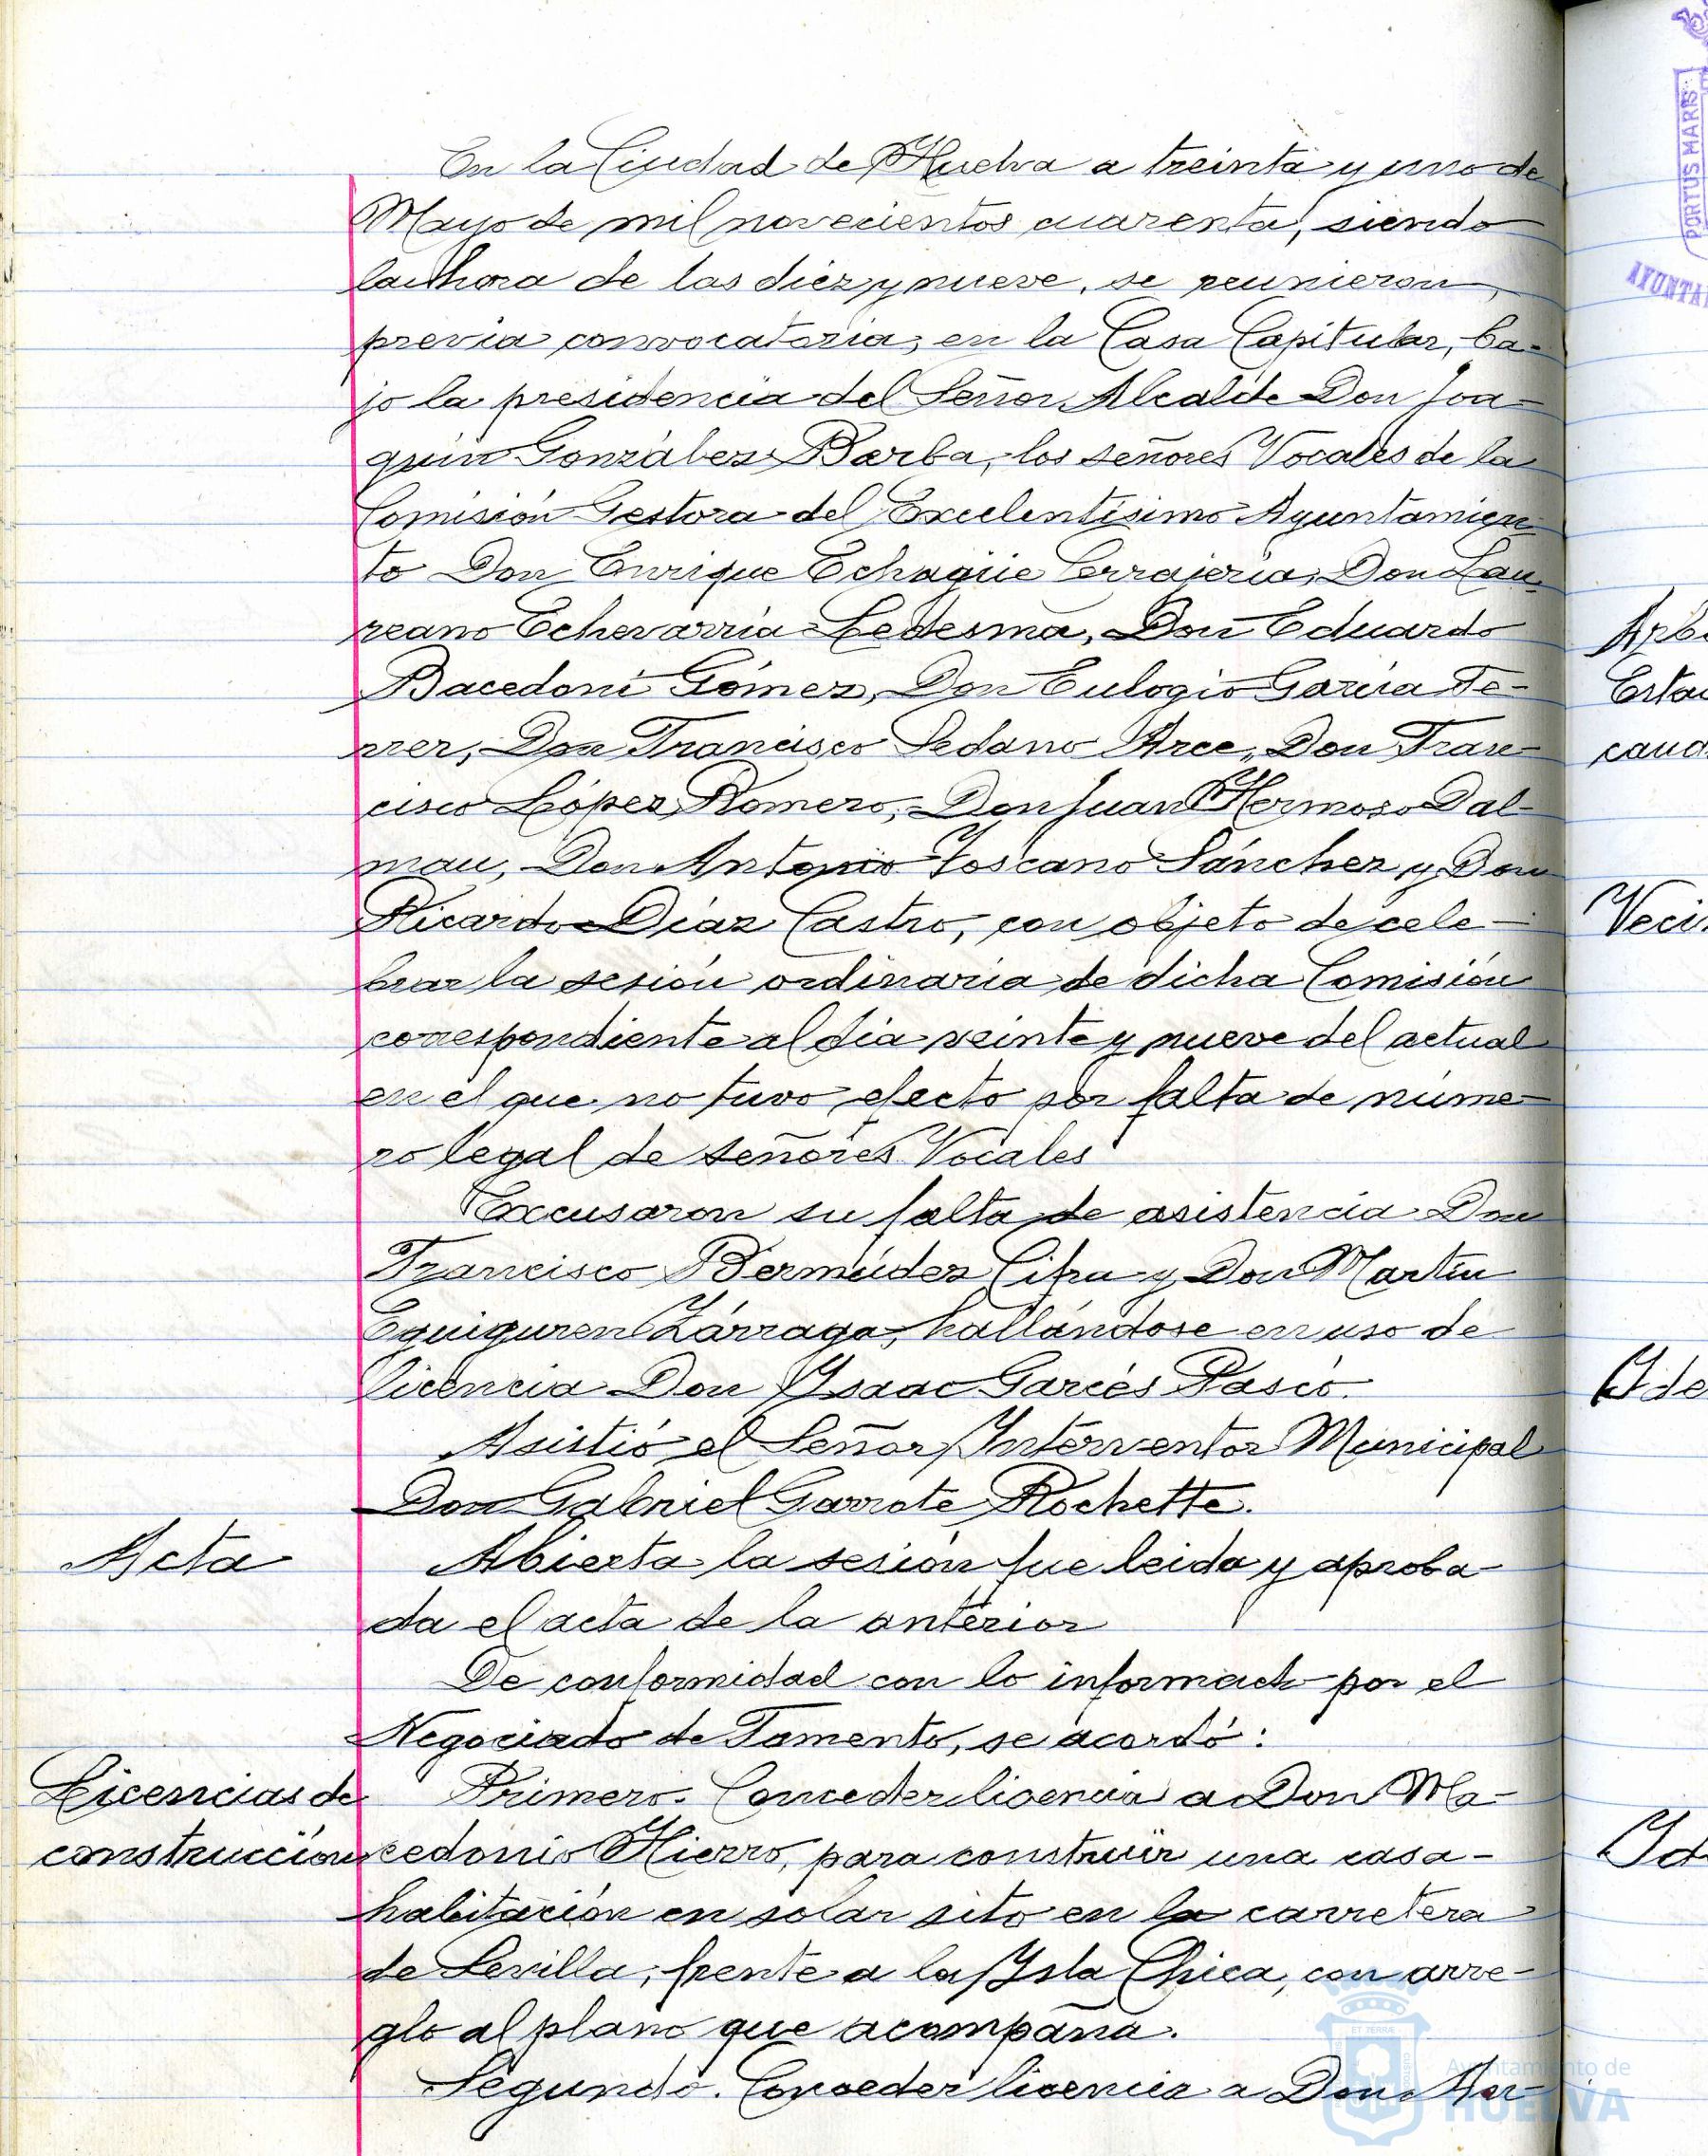 En la Ciudad de Huelva a treinta y uno de
Mayo de mil novecientos cuarenta, siendo
la hora de las diez y nueve, se reunieron,
previa convocatoria, en la Casa Capitular, ba-
jo la presidencia del Señor Alcalde Don Joa-
quín González Barba, los señores Vocales de la
Comisión Gestora del Excelentísimo Ayuntamien-
to Don Enrique Echagüe Cerrajería, Don Lau-
reano Echevarría Ledesma, Don Eduardo
Bacedoni Gómez, Don Eulogio García Fe-
rrer, Don Francisco Sedano Arce, Don Fran-
cisco López Romero, Don Juan Hermoso Dal-
mau, Don Antonio Toscano Sánchez y Don
Ricardo Díaz Castro, con objeto de cele-
brar la sesión ordinaria de dicha Comisión
correspondiente al día veinte y nueve del actual
en el que no tuvo efecto por falta de núme-
ro legal de señores Vocales
Excusaron su falta de asistencia Don
Francisco Bermúdez y Don Martín
Eguiguren Zárraga, hallándose en uso de
licencia Don Ysaac Garcés Pascó.
Asistió el Señor Interventor Municipal
Don Gabriel Garrote Rochette.
Acta
Abierta la sesión fue leida y aproba-
da el acta de la anterior
De conformidad con lo informado por el
Negociado de Fomento, se acordó:
Licencias de
construcción
Primero. Conceder licencia a Don Ma-
cedonio Hierro, para construir una casa-
habitación en solar sito en la carretera
de Sevilla, frente a la Ysla Chica, con arre-
glo al plano que acompaña.
Segundo. Conceder licencia a Don
PORTUS MARIS
Ayuntamiento de
HUELVA